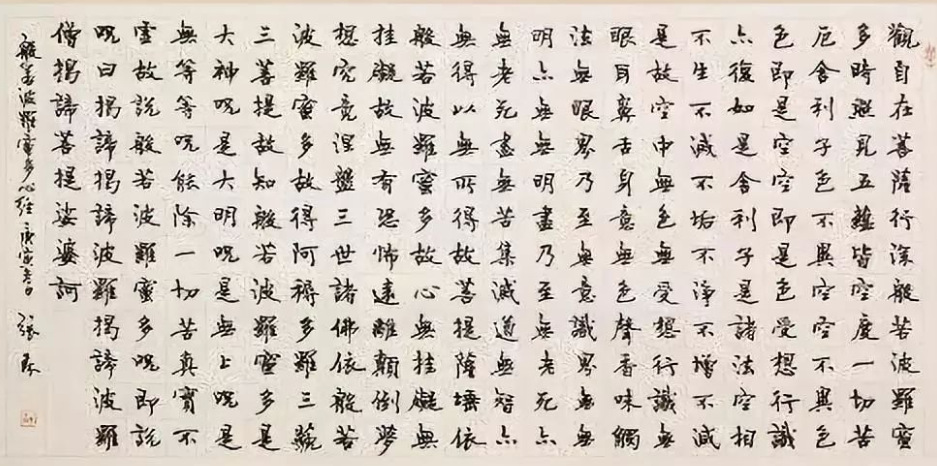 觀自在菩薩行深般若波羅蜜
多時照見五蘊皆空度一切苦
厄舍利子色不異空空不異色
色即是空空即是色受想行識
亦復如是舍利子是諸法空相
不生不滅不垢不淨不增不減
是故空中無色無受想行識無
眼耳鼻舌身意無色聲香味觸
法無眼界乃至無意識界無無
明亦無無明盡乃至無老死亦
無老死盡無苦集滅道無智亦
無得以無所得故菩提薩埵依
般若波羅蜜多故心無挂礙無
挂礙故無有恐怖遠離顛倒夢
想究竟涅槃三世諸佛依般若
波羅蜜多故得阿耨多羅三藐
三菩提故知般若波羅蜜多是
大神呪是大明呪是無上呪是
無等等呪能除一切苦真實不
虛故說般若波羅蜜多呪即說
呪曰揭諦揭諦波羅揭諦波羅
僧揭諦菩提娑婆訶
般若波羅蜜多心經 庚寅 日 張